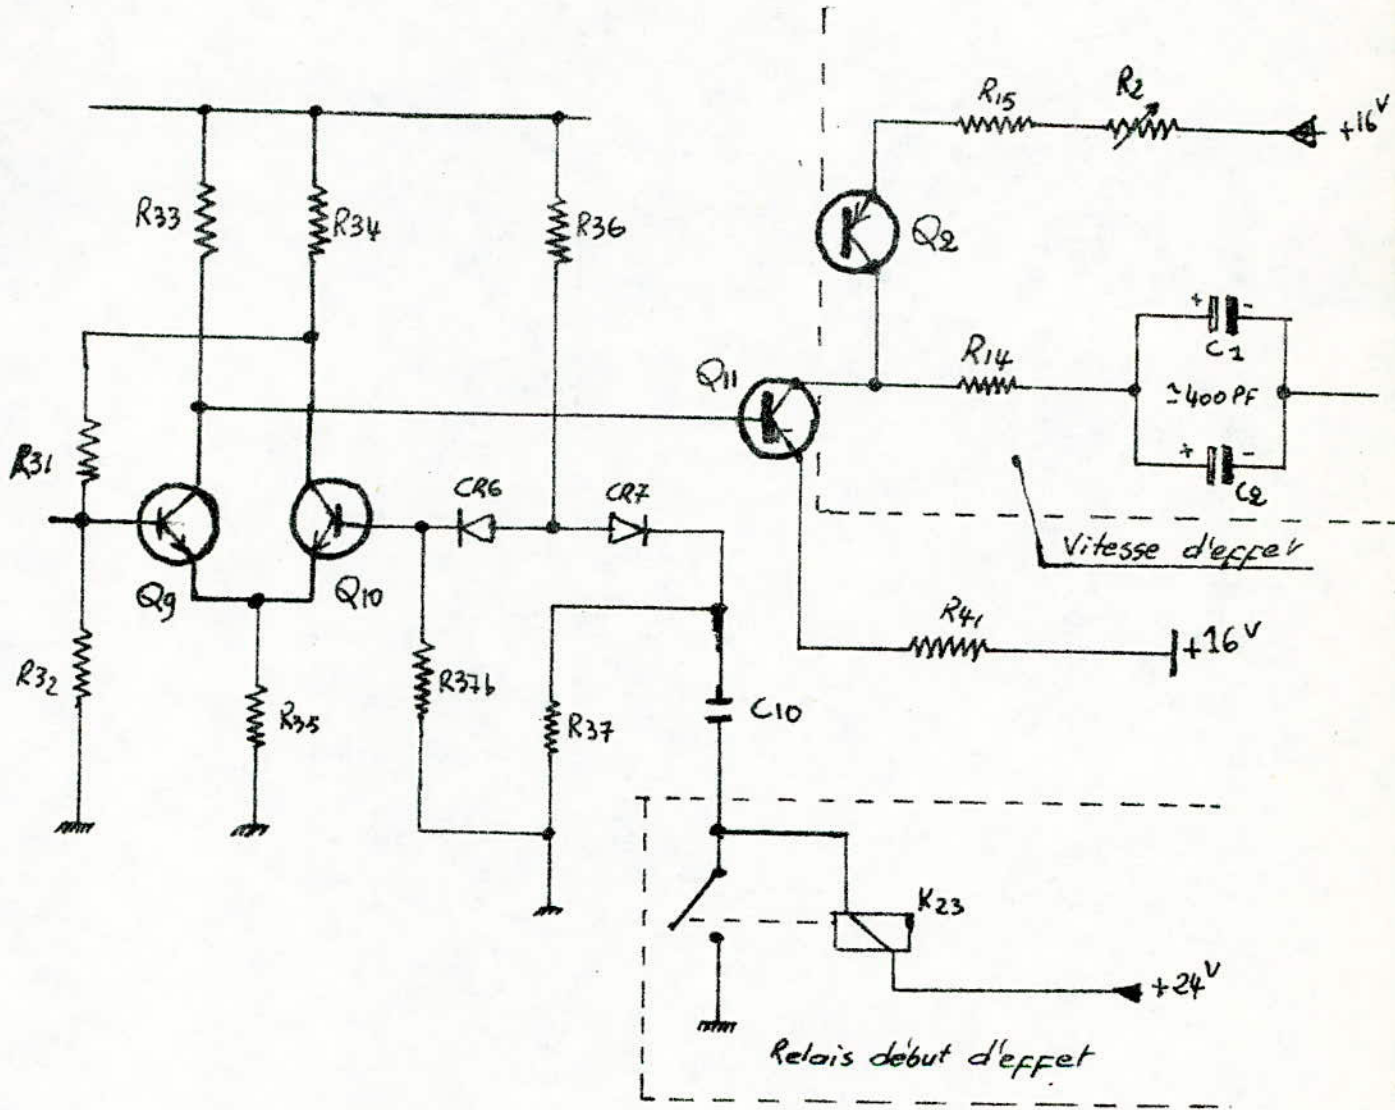 R15
R2
+16V
R33
R34
R36
Q2
+ -
C1
Q11
R14
≃400PF
R31
CR6
CR7
+ -
C2
Vitesse d'effet
Q9
Q10
R41
+16V
R32
R37b
R35
R37
C10
K23
+24V
Relais début d'effet